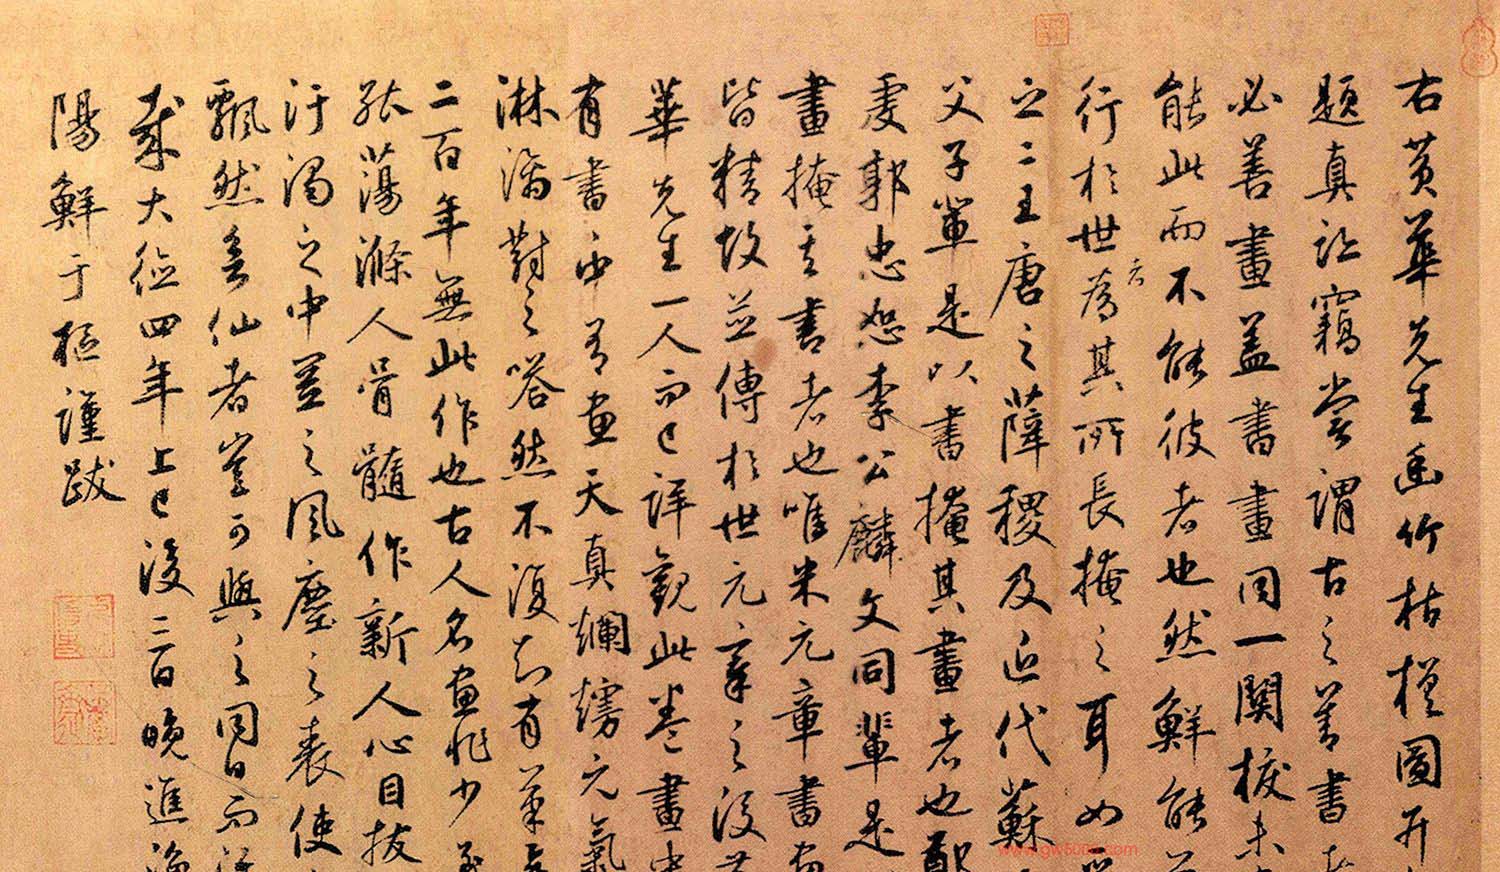 右黃華先生幽竹枯槎圖并
題真訖竊嘗謂古之善書者
必善畫蓋書畫同一關捩未
能此而不能彼者也然鮮能
行於世者為其所長掩之耳如
之二王唐之薛稷及近代蘇
父子輩是以書掩其畫者也鄭
虔郭忠恕李公麟文同輩是
畫掩其書者也唯米元章書畫
皆精故並傳於世元章之後
華先生一人而已詳觀此卷畫中
有書書中有畫天真爛熳元氣
淋漓對之嗒然不復知有筆
二百年無此作也古人名畫非少至
張蕩滌人骨髓作新人心目拔
汙濁之中置之風塵之表使
飄然欲仙者豈可與之同日而語
哉大德四年上巳後二百晚進漁
陽鮮于樞謹跋
www.gw5uu.com